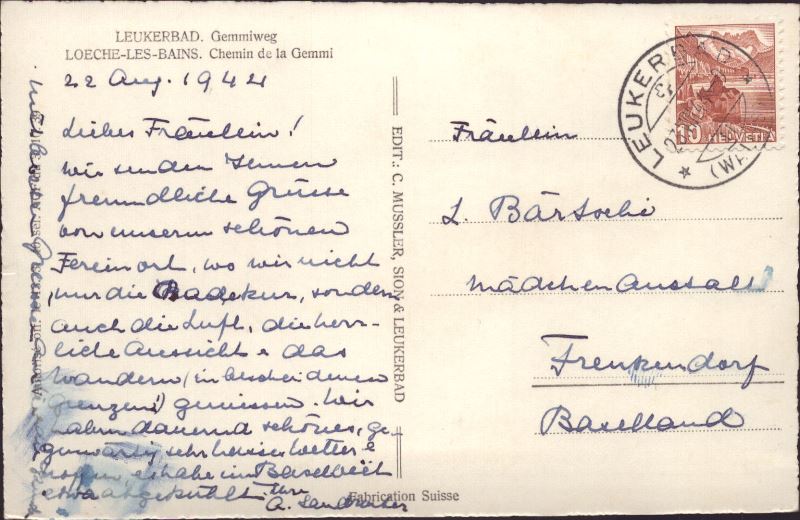 LEUKERBAD. Gemmiweg
LOECHE-LES-BAINS. Chemin de la Gemmi
22 Aug. 1944
Liebes Fräulein!
wir senden Ihnen
freundliche Grüsse
von unserem schönen
Ferienort, wo wir nicht
nur die Badekur, sondern
auch die Luft, die herr-
liche Aussicht & das
Wandern (in bescheidenen
Grenzen!) geniessen. Wir
haben dauernd schönes, ge-
genwärtig sehr heisses Wetter &
hoffen, es habe im Baselbiet
etwas abgekühlt. Ihre
A.
EDIT.: C. MUSSLER, SION & LEUKERBAD
Fabrication Suisse
LEUKERBAD
10 HELVETIA
Fräulein
L. Bärtschi
Mädchen Anstalt
Frenkendorf
Baselland